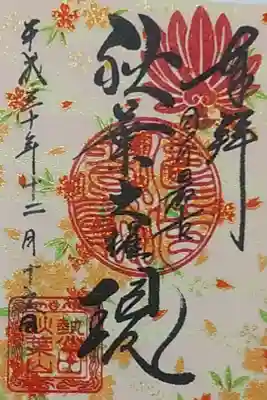 奉拝
秋葉大権現
平成三十年十二月十日
熱田
秋葉山